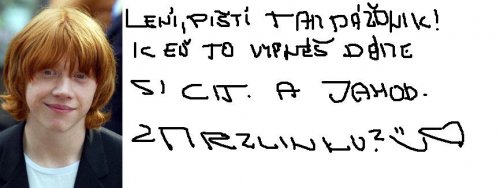 LENÍ, PIŠTÍ TAM DÁŽDNIK!
KEĎ TO VYPNEŠ DÁME
SI CIT. A JAHOD.
ZMRZLINKU?